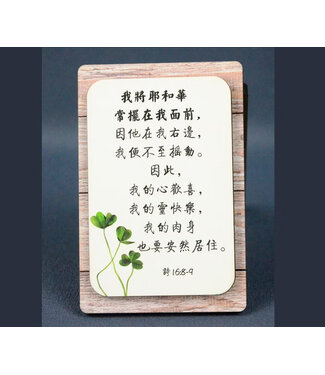 我將耶和華
常擺在我面前，
因他在我右邊，
我便不至搖動。
因此，
我的心歡喜，
我的靈快樂，
我的肉身
也要安然居住。
詩 16:8-9